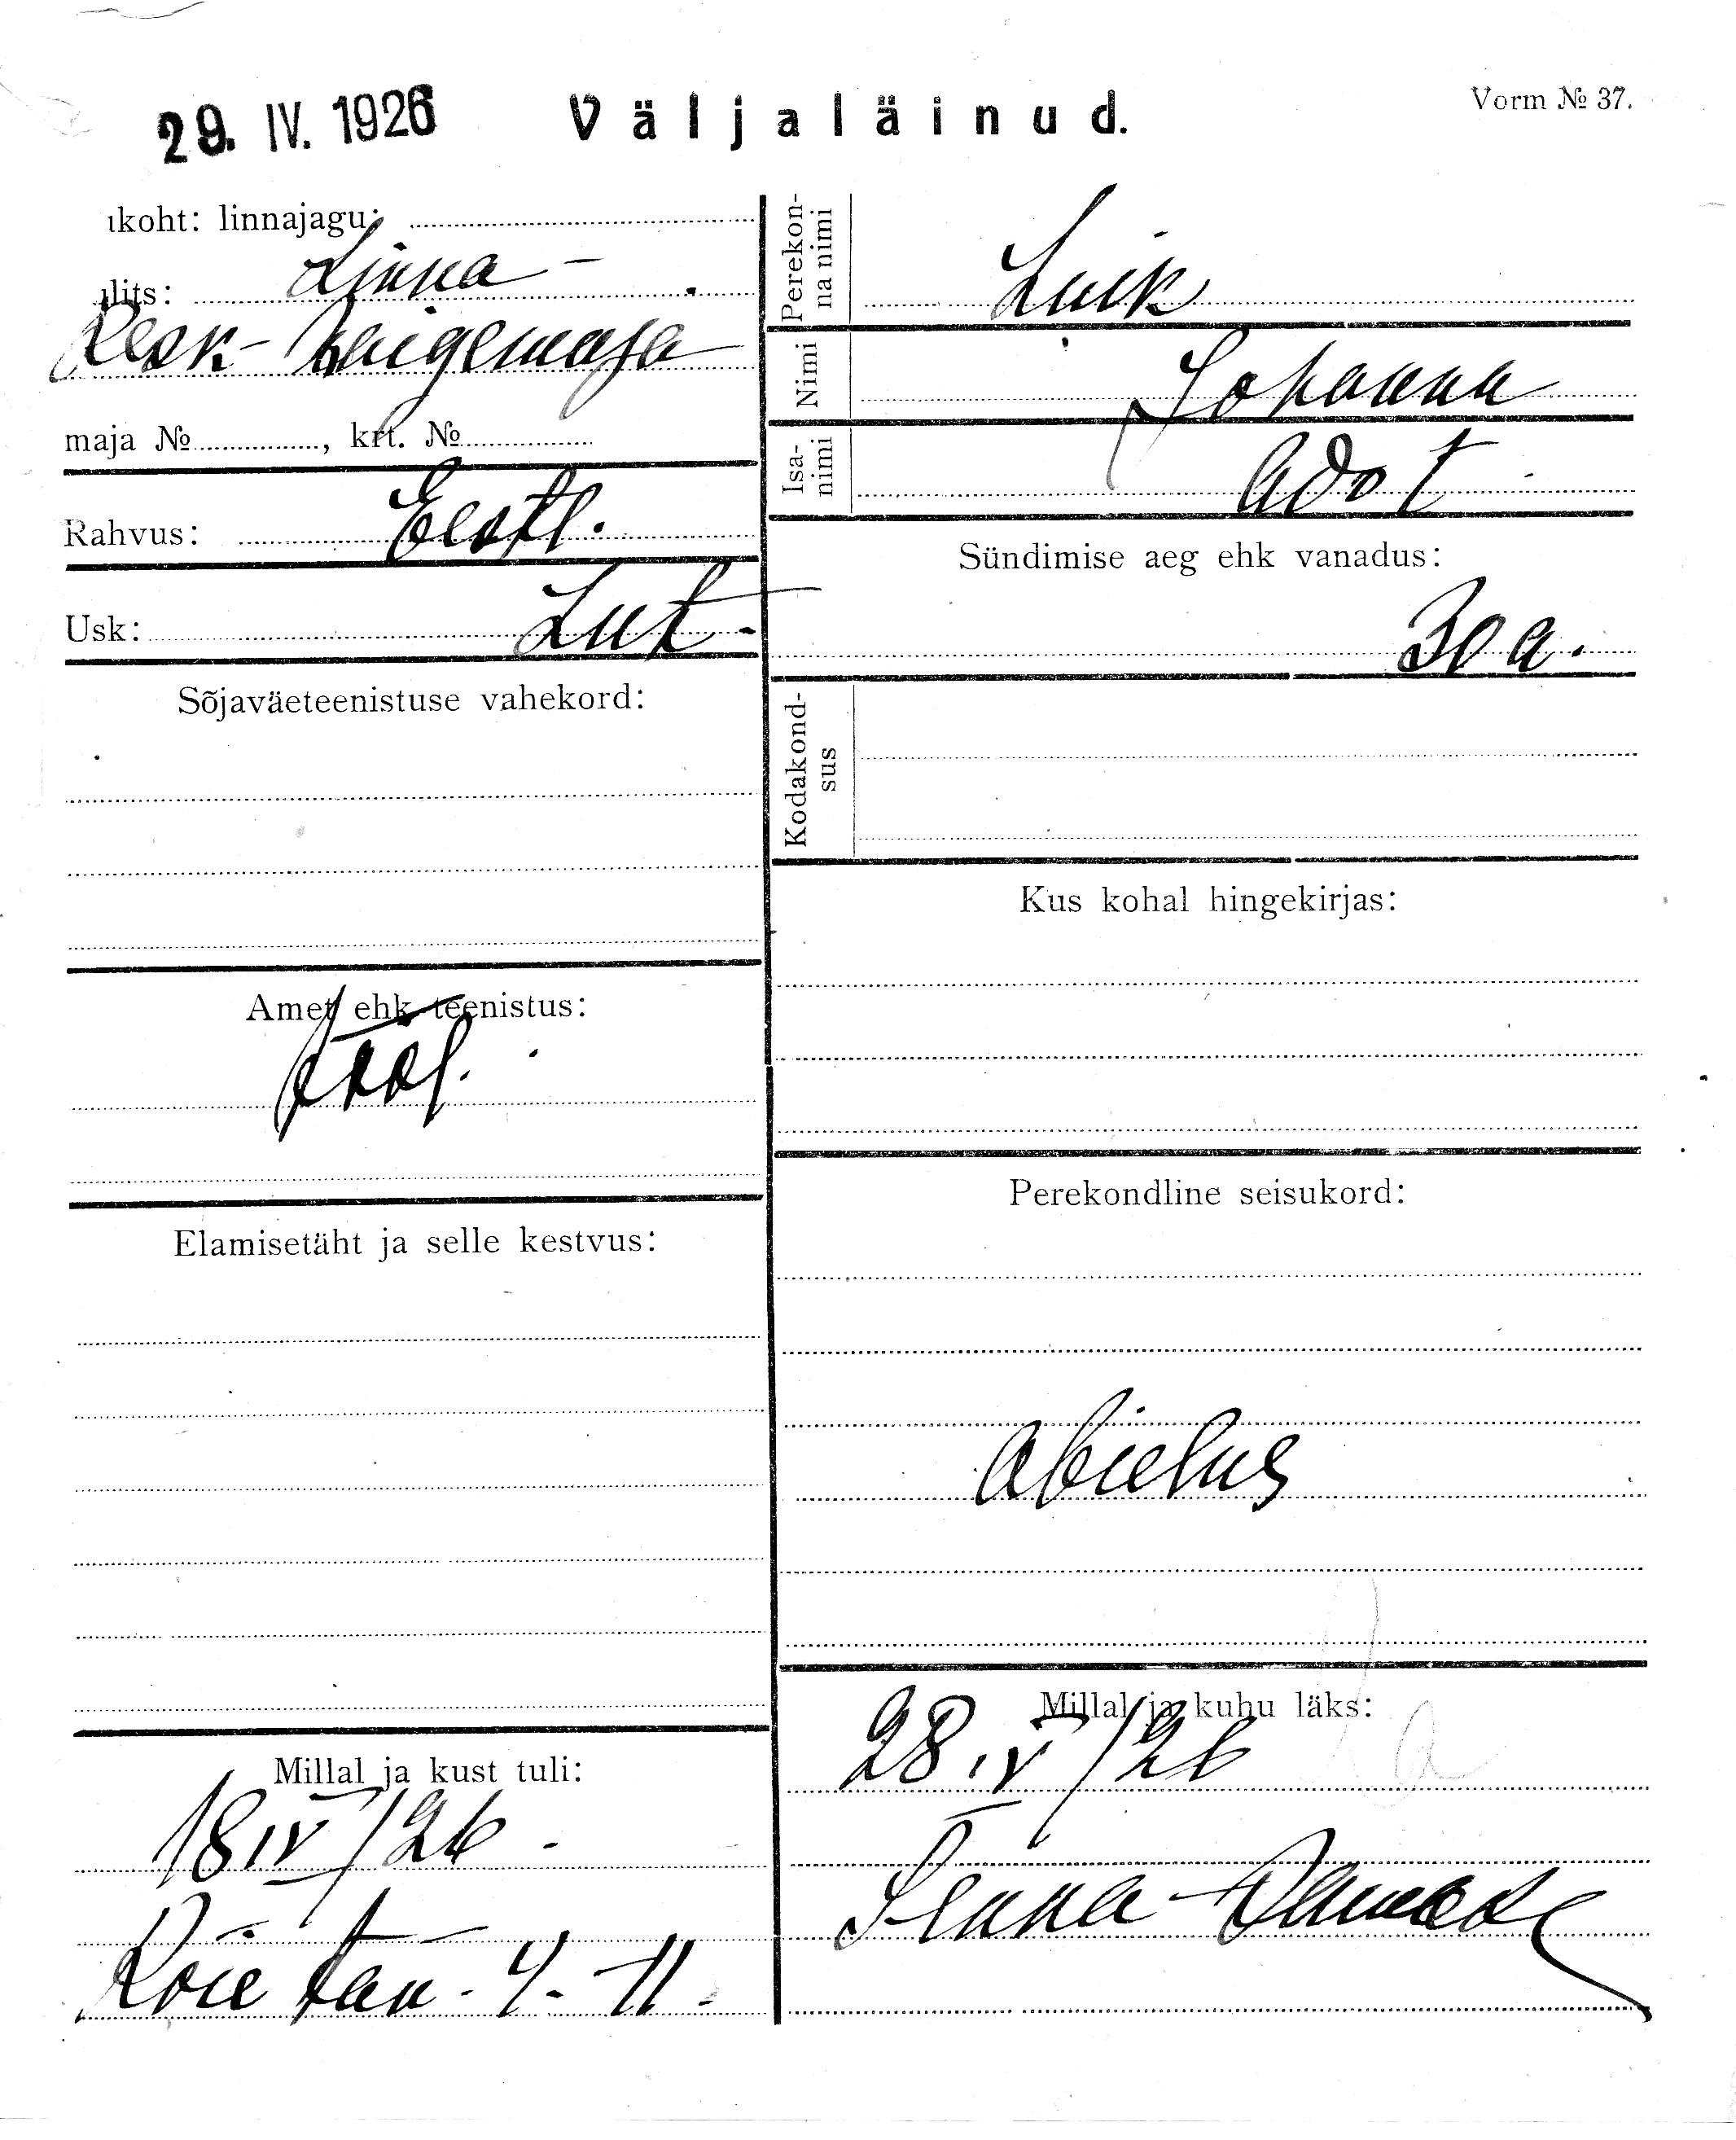 29. IV. 1926
Väljaläinud.
Vorm № 37.
ıkoht: linnajagu:
ılits: Linna-
Kesk-haigemaja
maja №, krt. №
Rahvus: Eestl.
Usk: Lut.
Sõjaväeteenistuse vahekord:
Amet ehk teenistus:
tööl.
Elamisetäht ja selle kestvus:
Millal ja kust tuli:
18 IV/26
Köie tän. 4-11.
Perekonna nimi
Luik
Nimi
Johanna
Isanimi
Ado t
Sündimise aeg ehk vanadus:
30 a.
Kodakondsus
Kus kohal hingekirjas:
Perekondline seisukord:
abielus
Millal ja kuhu läks:
28 IV/26